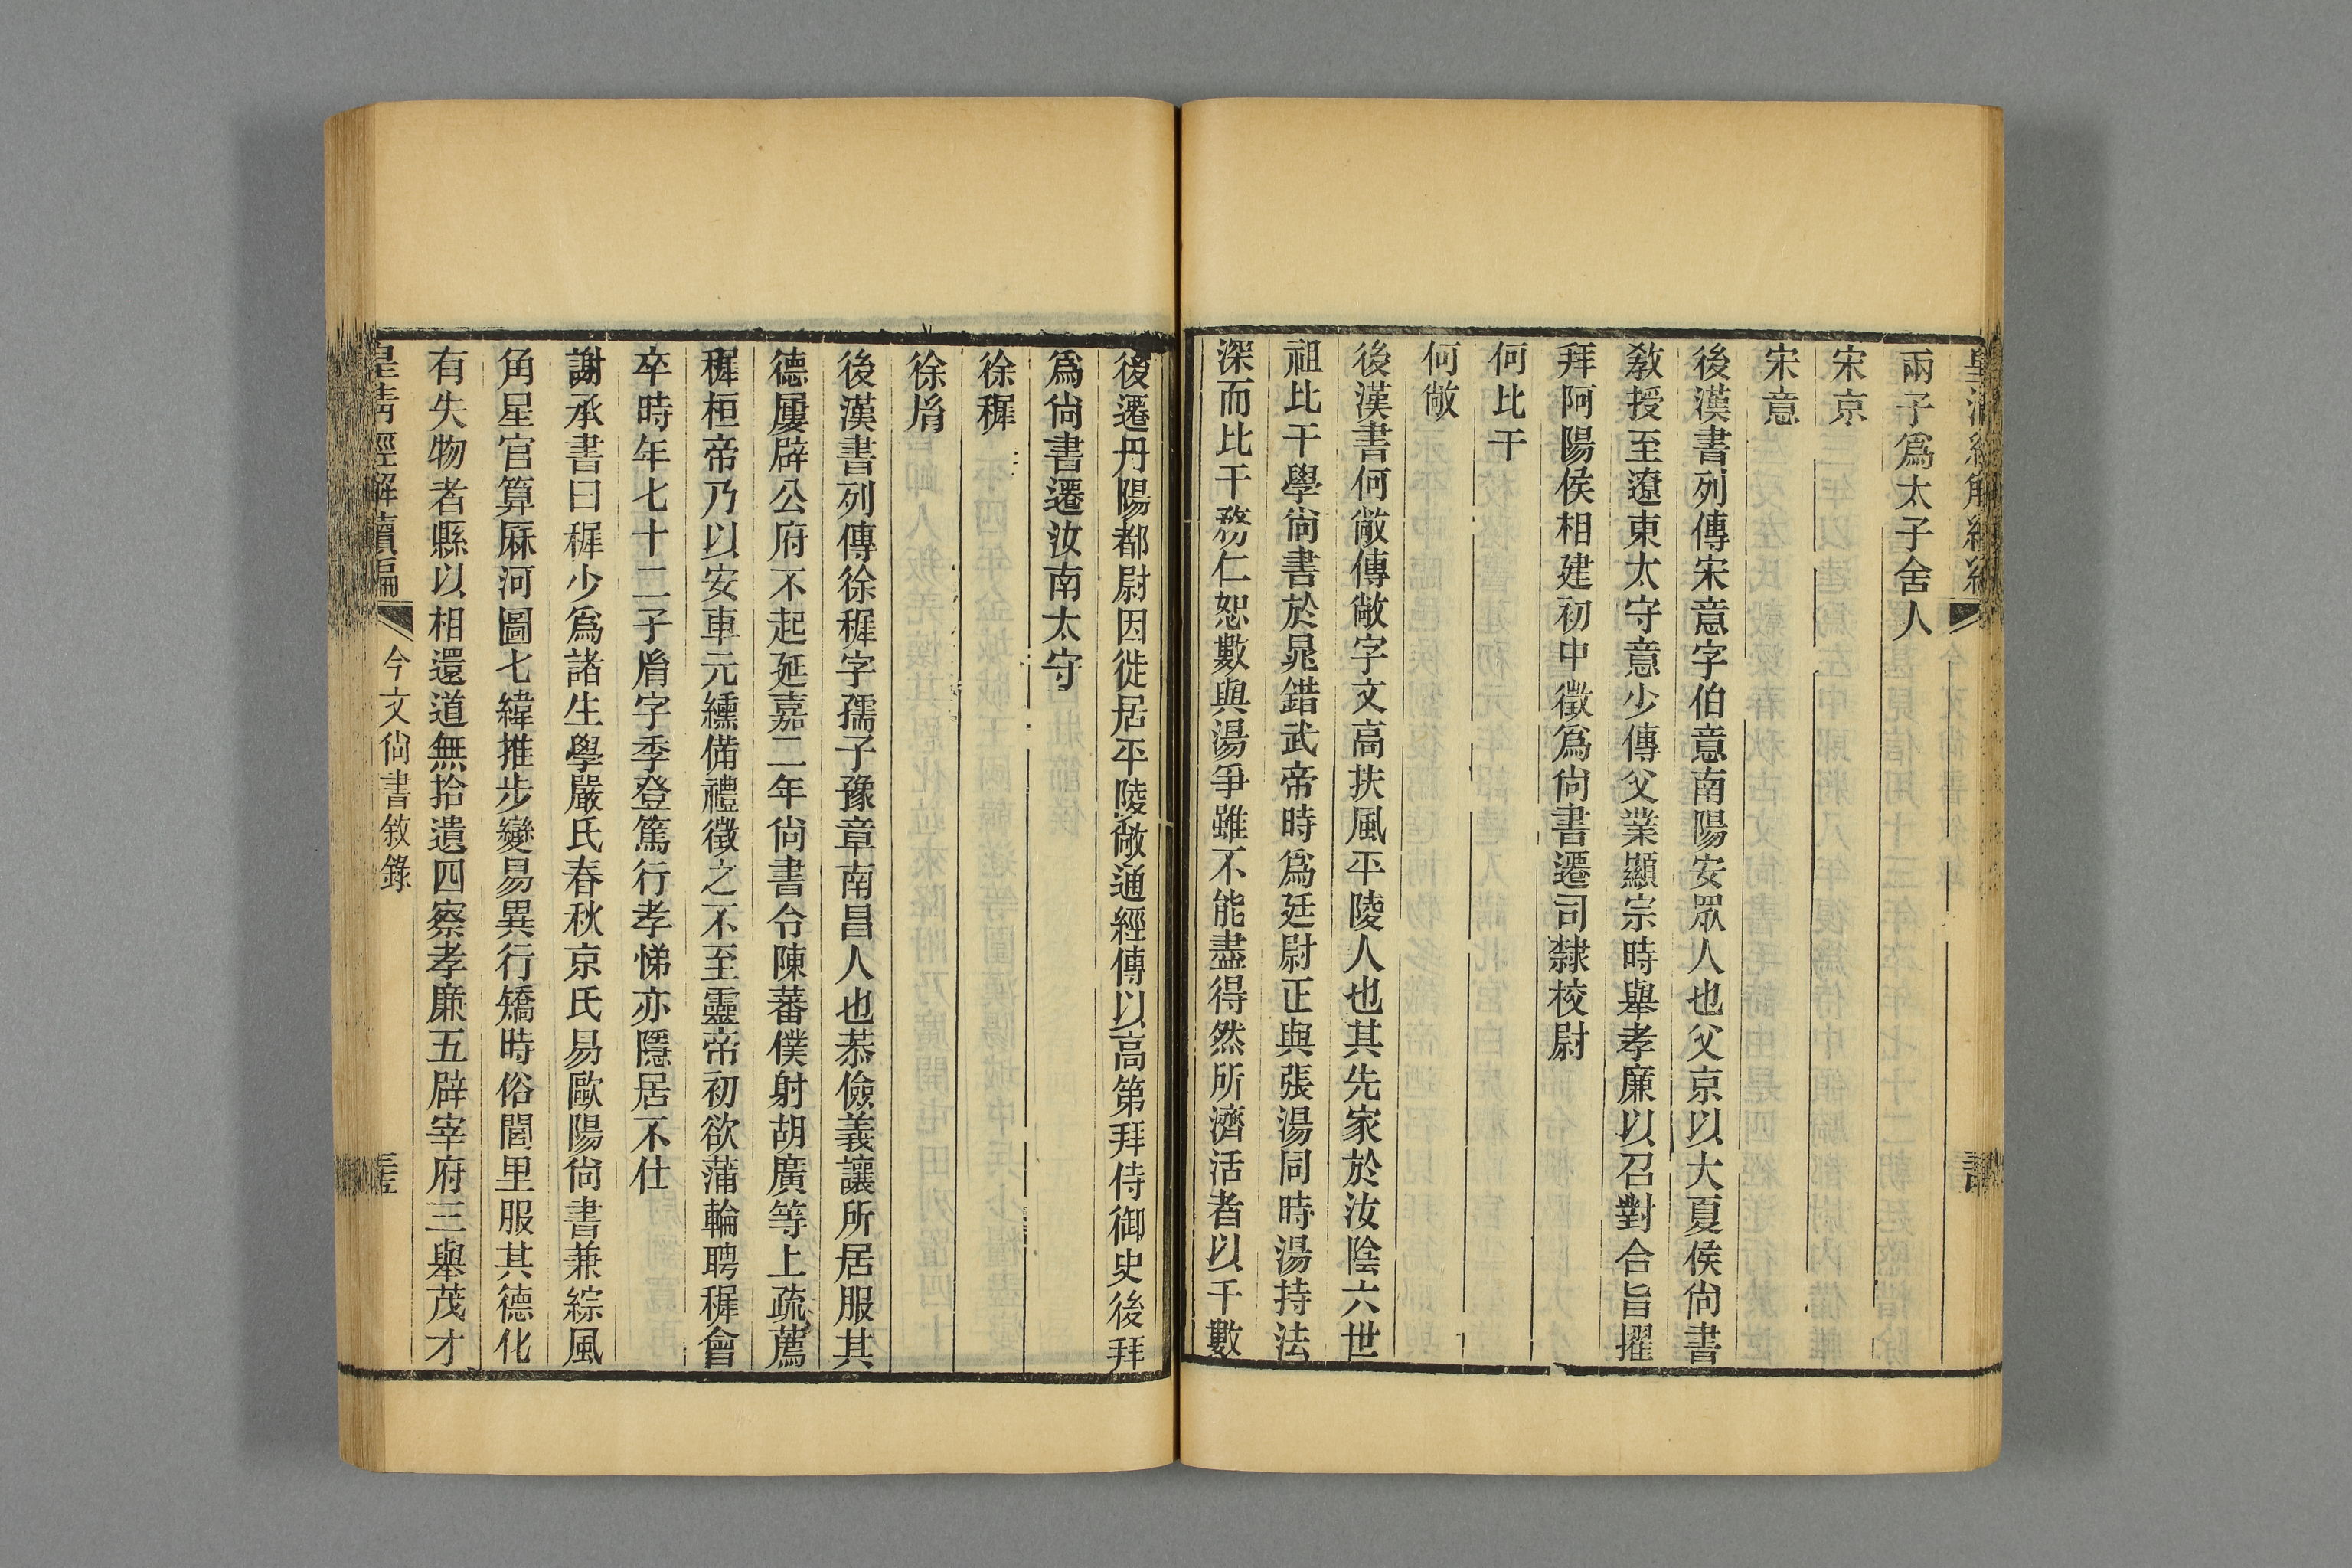 兩子爲太子舍人
宋京
宋意
後漢書列傳宋意字伯意南陽安眾人也父京以大夏侯尙書
敎授至遼東太守意少傳父業顯宗時舉孝廉以召對合旨擢
拜阿陽侯相建初中徵爲尙書遷司隸校尉
何比干
何敞
後漢書何敞傳敞字文高扶風平陵人也其先家於汝陰六世
祖比干學尙書於晁錯武帝時爲廷尉正與張湯同時湯持法
深而比干務仁恕數與湯爭雖不能盡得然所濟活者以千數
後遷丹陽都尉因徙居平陵敞通經傳以高第拜侍御史後拜
爲尙書遷汝南太守
徐穉
徐㣧
後漢書列傳徐穉字孺子豫章南昌人也恭儉義讓所居服其
德屢辟公府不起延嘉二年尙書令陳蕃僕射胡廣等上疏薦
穉桓帝乃以安車元纁備禮徵之不至靈帝初欲蒲輪聘穉會
卒時年七十二子㣧字季登篤行孝悌亦隱居不仕
謝承書曰穉少爲諸生學嚴氏春秋京氏易歐陽尙書兼綜風
角星官算厤河圖七緯推步變易異行矯時俗閭里服其德化
有失物者縣以相還道無拾遺四察孝廉五辟宰府三舉茂才
皇淸經解續編
今文尙書敘錄